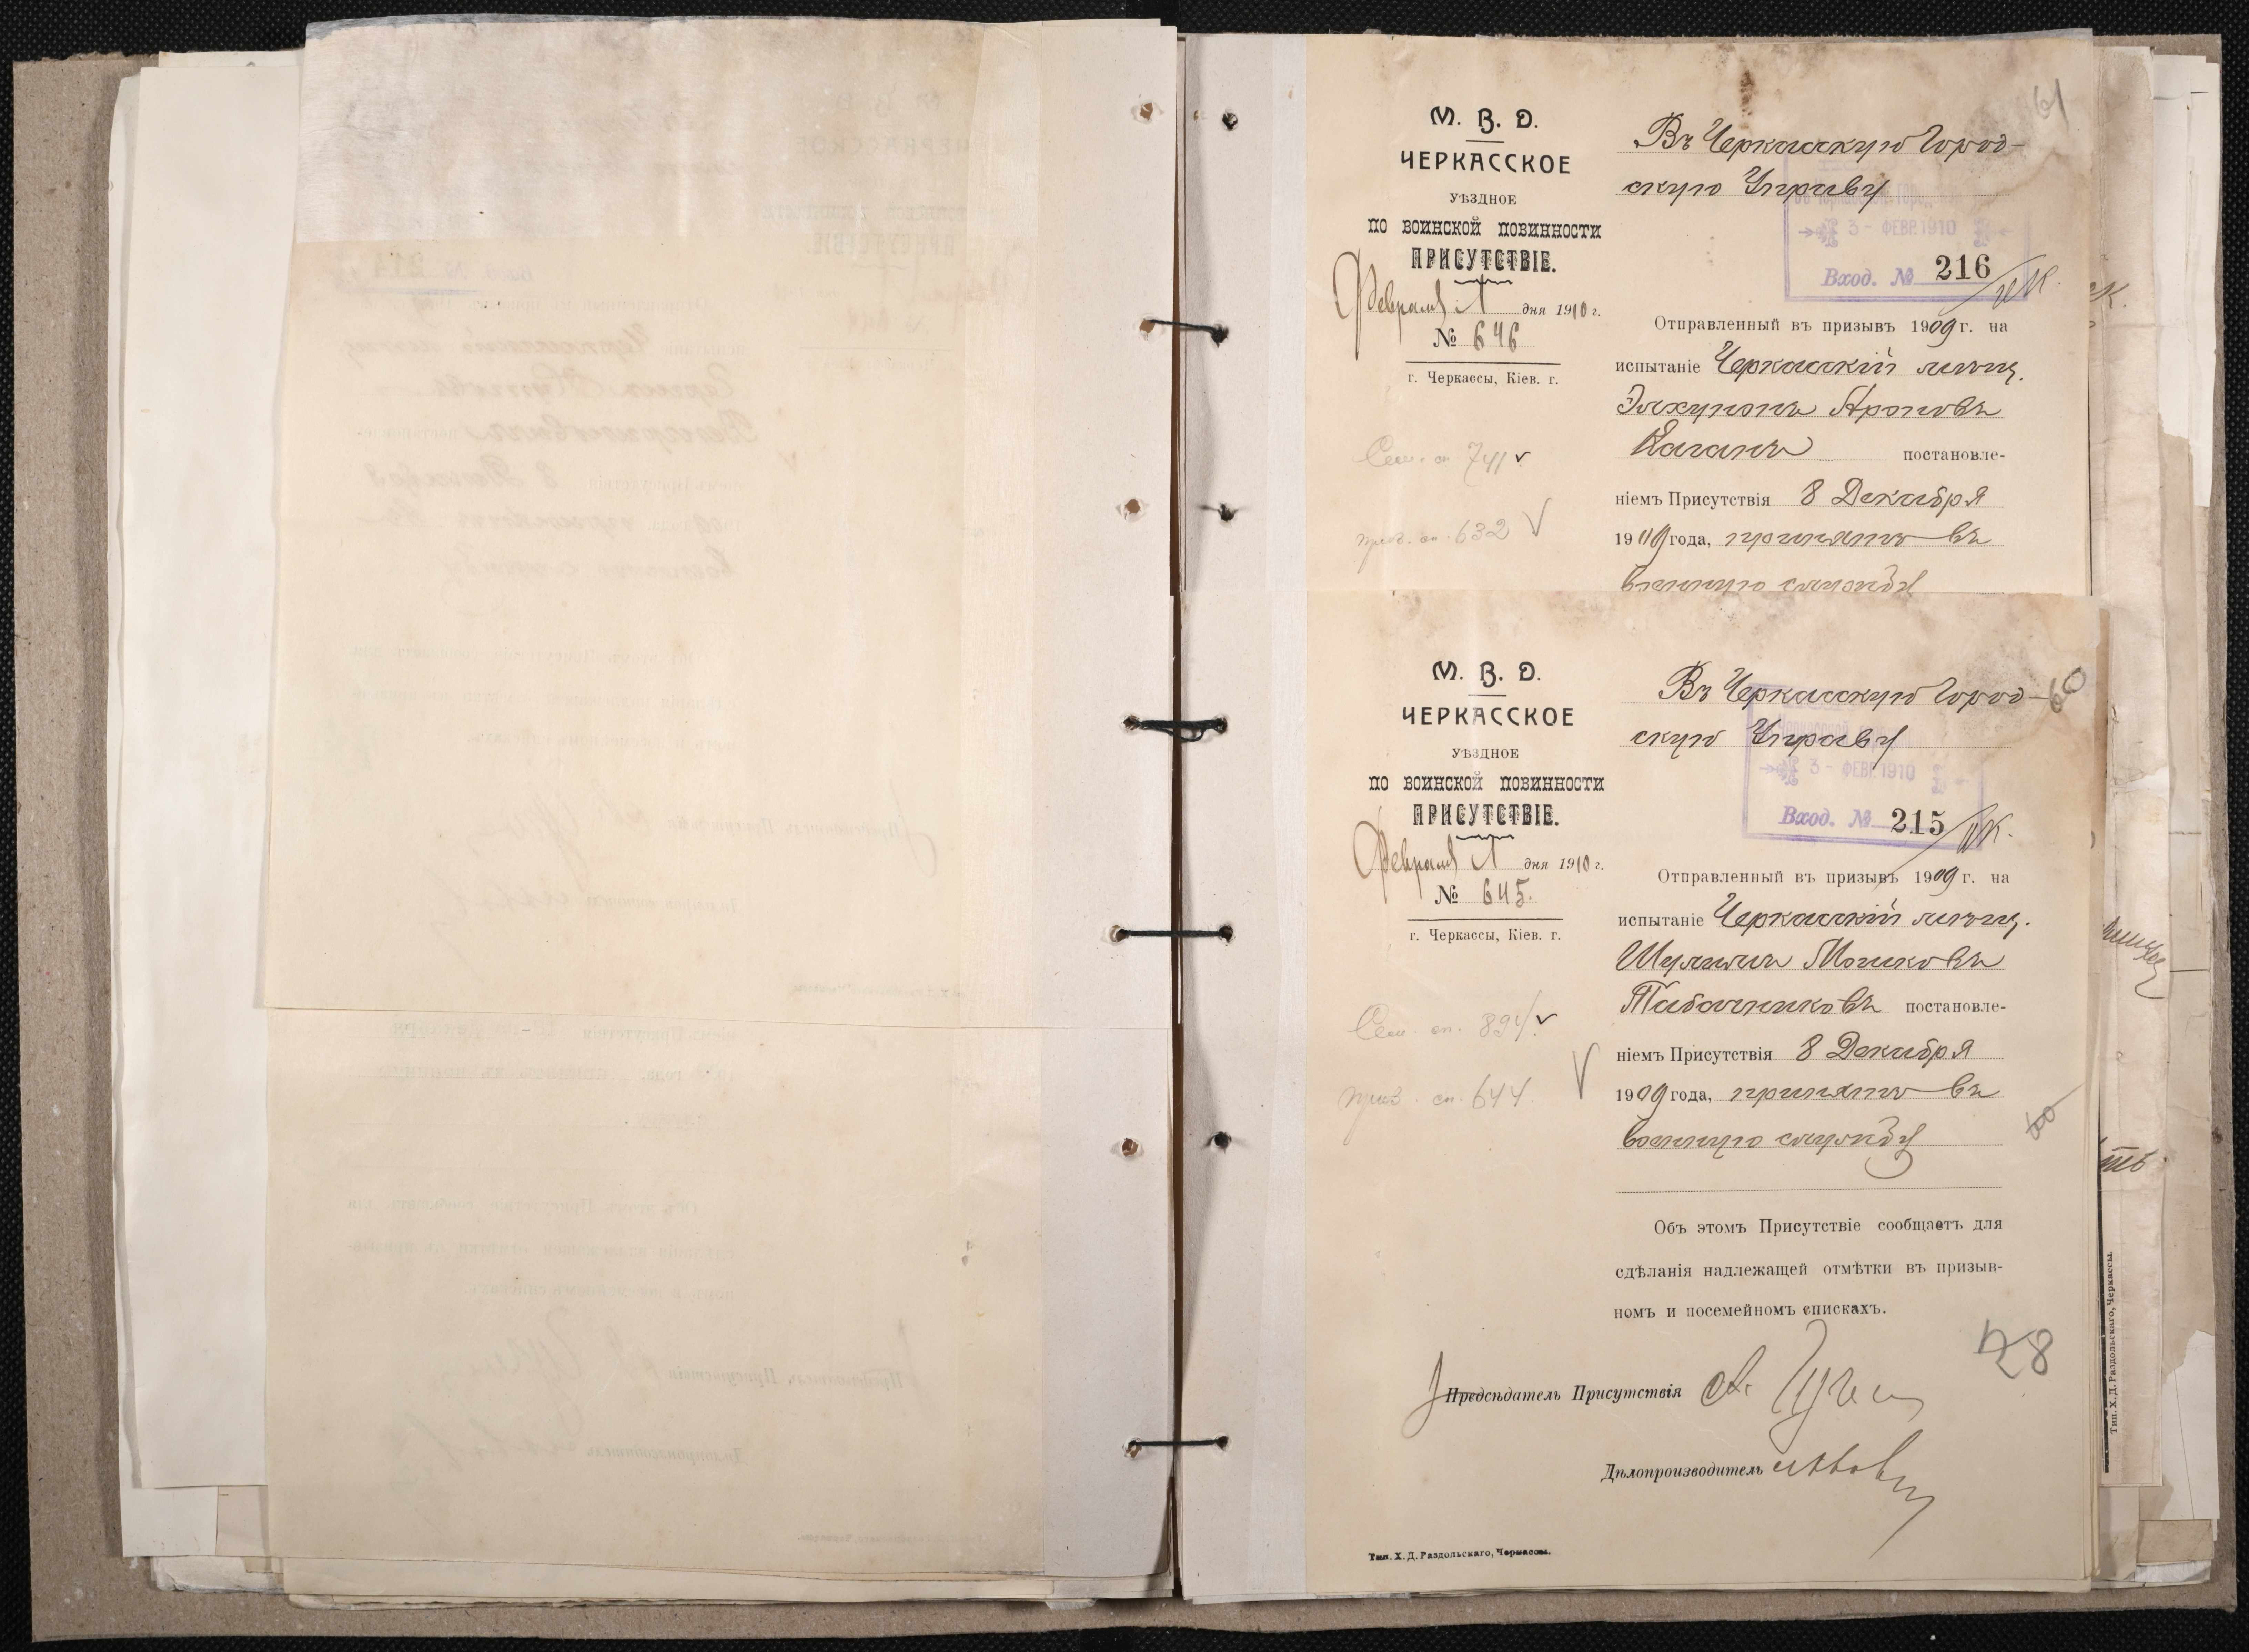 61
М. В. Д.
ЧЕРКАССКОЕ
УѢЗДНОЕ
ПО ВОИНСКОЙ ПОВИННОСТИ
ПРИСУТСТВІЕ.
Февраля 1 дня 1910 г.
№ 646
г. Черкассы, Кіев. г.
Сем. сп. 741
приз. сп. 632
Въ Черкасскую Город-
скую Управу
3 - ФЕВР. 1910
Вход. № 216
Отправленный въ призывъ 1909 г. на
испытаніе Черкасскій мѣщ.
Элхунонъ Ароновъ
Каганъ постановле-
ніемъ Присутствія 8 Декабря
1909 года, принятъ въ
военную службу
60
М. В. Д.
ЧЕРКАССКОЕ
УѢЗДНОЕ
ПО ВОИНСКОЙ ПОВИННОСТИ
ПРИСУТСТВІЕ.
Февраля 1 дня 1910 г.
№ 645.
г. Черкассы, Кіев. г.
Сем. сп. 894
приз. сп. 644.
Въ Черкасскую Город-
скую Управу
3 - ФЕВР. 1910
Вход. № 215
Отправленный въ призывъ 1909 г. на
испытаніе Черкасскій мѣщ.
Шулимъ Мошковъ
Табачниковъ постановле-
ніемъ Присутствія 8 Декабря
1909 года, принятъ въ
военную службу
Объ этомъ Присутствіе сообщаетъ для
сдѣланія надлежащей отмѣтки въ призыв-
номъ и посемейномъ спискахъ.
28
Предсѣдатель Присутствія
Дѣлопроизводитель
Тип. Х. Д. Раздольскаго, Черкассы.
Тип. Х. Д. Раздольскаго, Черкассы.